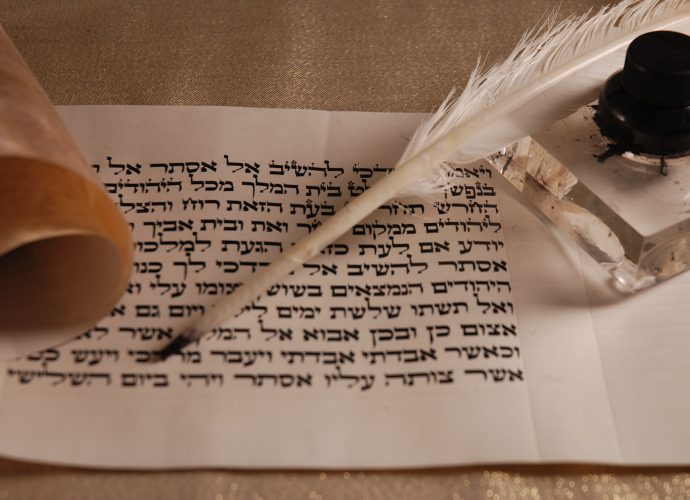 להשיב אל אסתר אל
בית המלך מכל היהודים
החרש בעת הזאת רוח
ליהודים ממקום ואת ובית אביך
יודע אם לעת הגעת
אסתר להשיב אל לך
היהודים הנמצאים וצומו עלי
ואל תשתו שלשת ימים ויום גם
אצום כן ובכן אבוא אל אשר לא
וכאשר אבדתי אבדתי ויעבר ויעש
אשר צותה עליו אסתר ויהי ביום השלישי